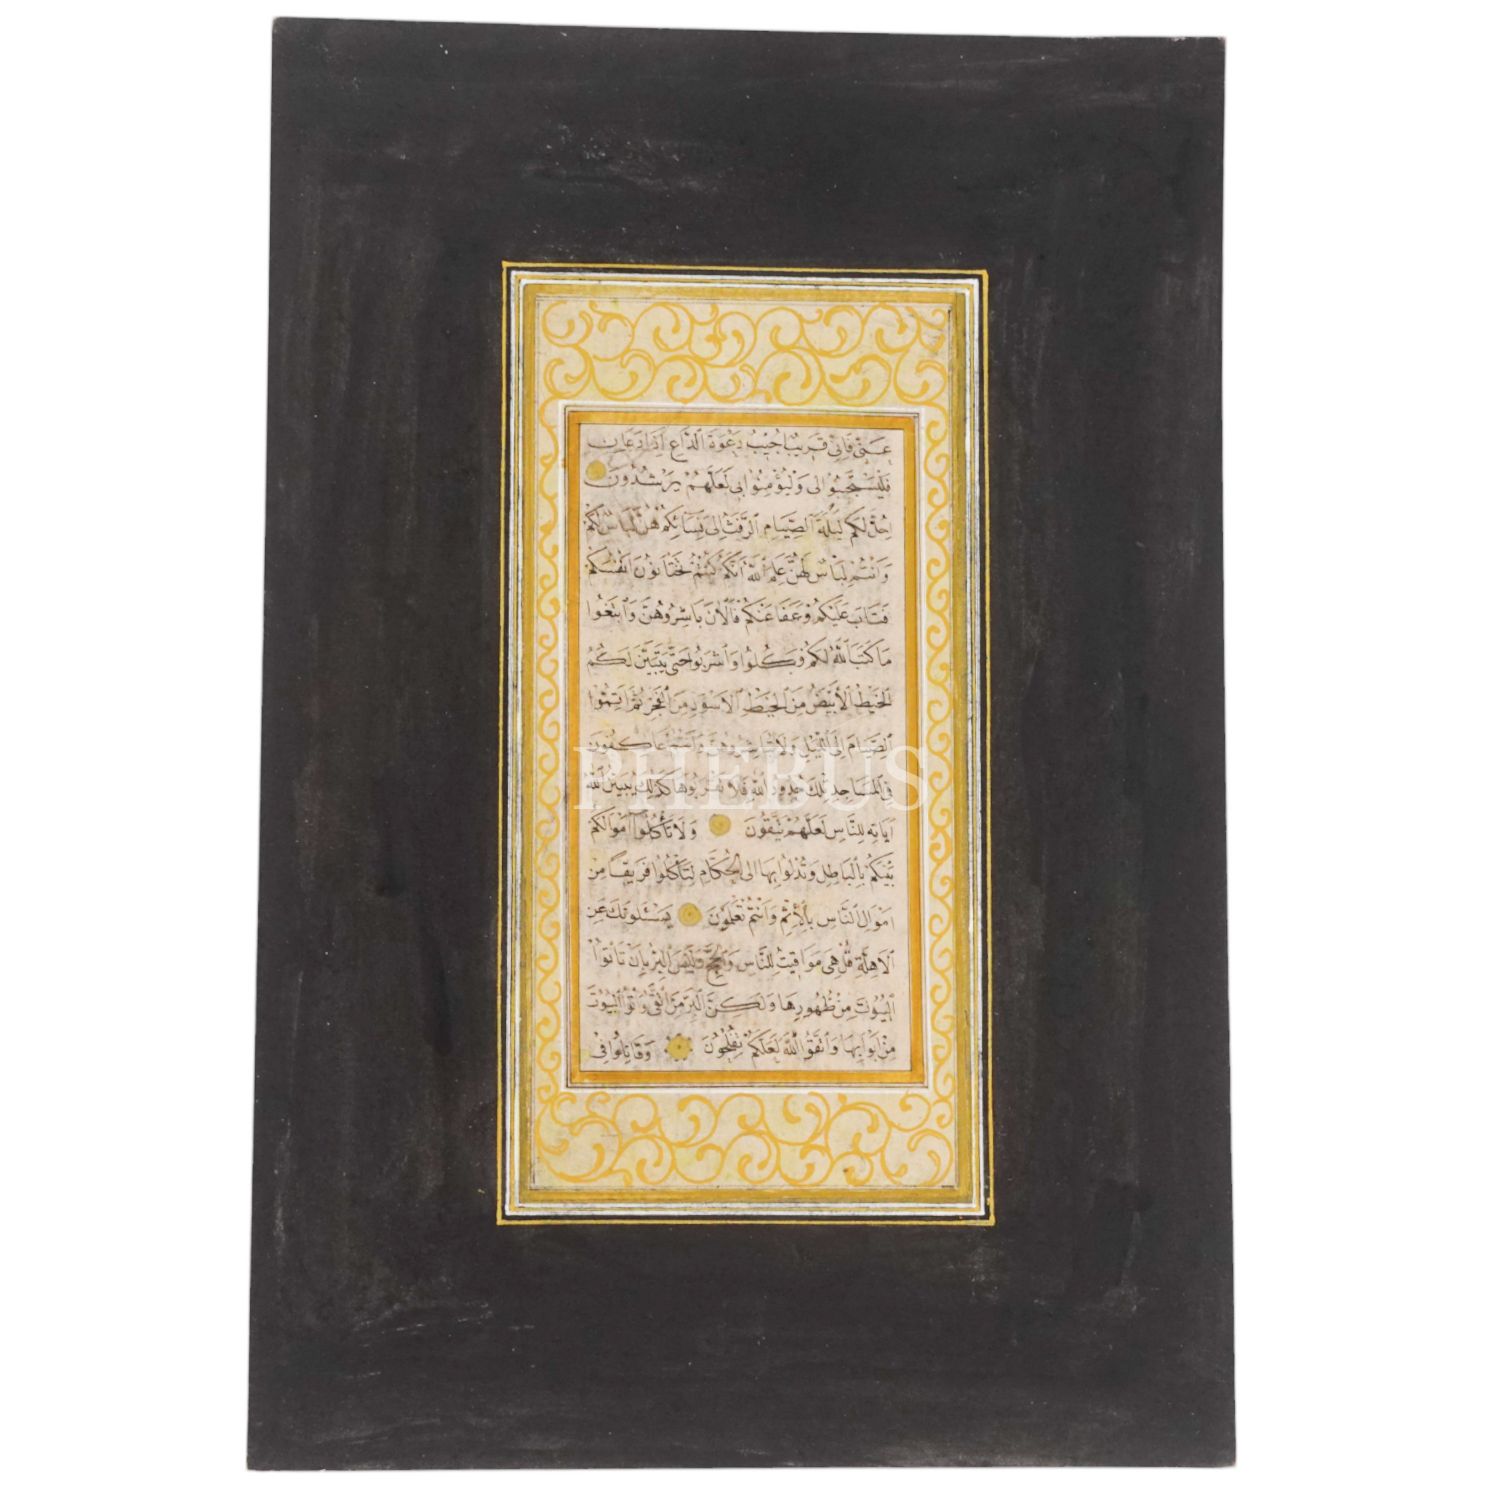 عَنِّي فَإِنِّي قَرِيبٌ أُجِيبُ دَعْوَةَ الدَّاعِ إِذَا دَعَانِ
فَلْيَسْتَجِيبُوا لِي وَلْيُؤْمِنُوا بِي لَعَلَّهُمْ يَرْشُدُونَ
اُحِلَّ لَكُمْ لَيْلَةَ الصِّيَامِ الرَّفَثُ اِلَى نِسَائِكُمْ هُنَّ لِبَاسٌ لَكُمْ
وَاَنْتُمْ لِبَاسٌ لَهُنَّ عَلِمَ اللّٰهُ اَنَّكُمْ كُنْتُمْ تَخْتَانُونَ اَنْفُسَكُمْ
فَتَابَ عَلَيْكُمْ وَعَفَا عَنْكُمْ فَالْاٰنَ بَاشِرُوهُنَّ وَابْتَغُوا
مَا كَتَبَ اللّٰهُ لَكُمْ وَكُلُوا وَاشْرَبُوا حَتَّى يَتَبَيَّنَ لَكُمُ
الْخَيْطُ الْاَبْيَضُ مِنَ الْخَيْطِ الْاَسْوَدِ مِنَ الْفَجْرِ ثُمَّ اَتِمُّوا
الصِّيَامَ اِلَى اللَّيْلِ وَلَا تُبَاشِرُوهُنَّ وَاَنْتُمْ عَاكِفُونَ
فِي الْمَسَاجِدِ تِلْكَ حُدُودُ اللّٰهِ فَلَا تَقْرَبُوهَا كَذٰلِكَ يُبَيِّنُ اللّٰهُ
اٰيَاتِهِ لِلنَّاسِ لَعَلَّهُمْ يَتَّقُونَ وَلَا تَأْكُلُوا اَمْوَالَكُمْ
بَيْنَكُمْ بِالْبَاطِلِ وَتُدْلُوا بِهَا اِلَى الْحُكَّامِ لِتَأْكُلُوا فَرِيقًا مِنْ
اَمْوَالِ النَّاسِ بِالْاِثْمِ وَاَنْتُمْ تَعْلَمُونَ يَسْئَلُونَكَ عَنِ
الْاَهِلَّةِ قُلْ هِيَ مَوَاقِيتُ لِلنَّاسِ وَالْحَجِّ وَلَيْسَ الْبِرُّ بِاَنْ تَأْتُوا
الْبُيُوتَ مِنْ ظُهُورِهَا وَلٰكِنَّ الْبِرَّ مَنِ اتَّقٰى وَأْتُوا الْبُيُوتَ
مِنْ اَبْوَابِهَا وَاتَّقُوا اللّٰهَ لَعَلَّكُمْ تُفْلِحُونَ وَقَاتِلُوا فِي
PHEBUS